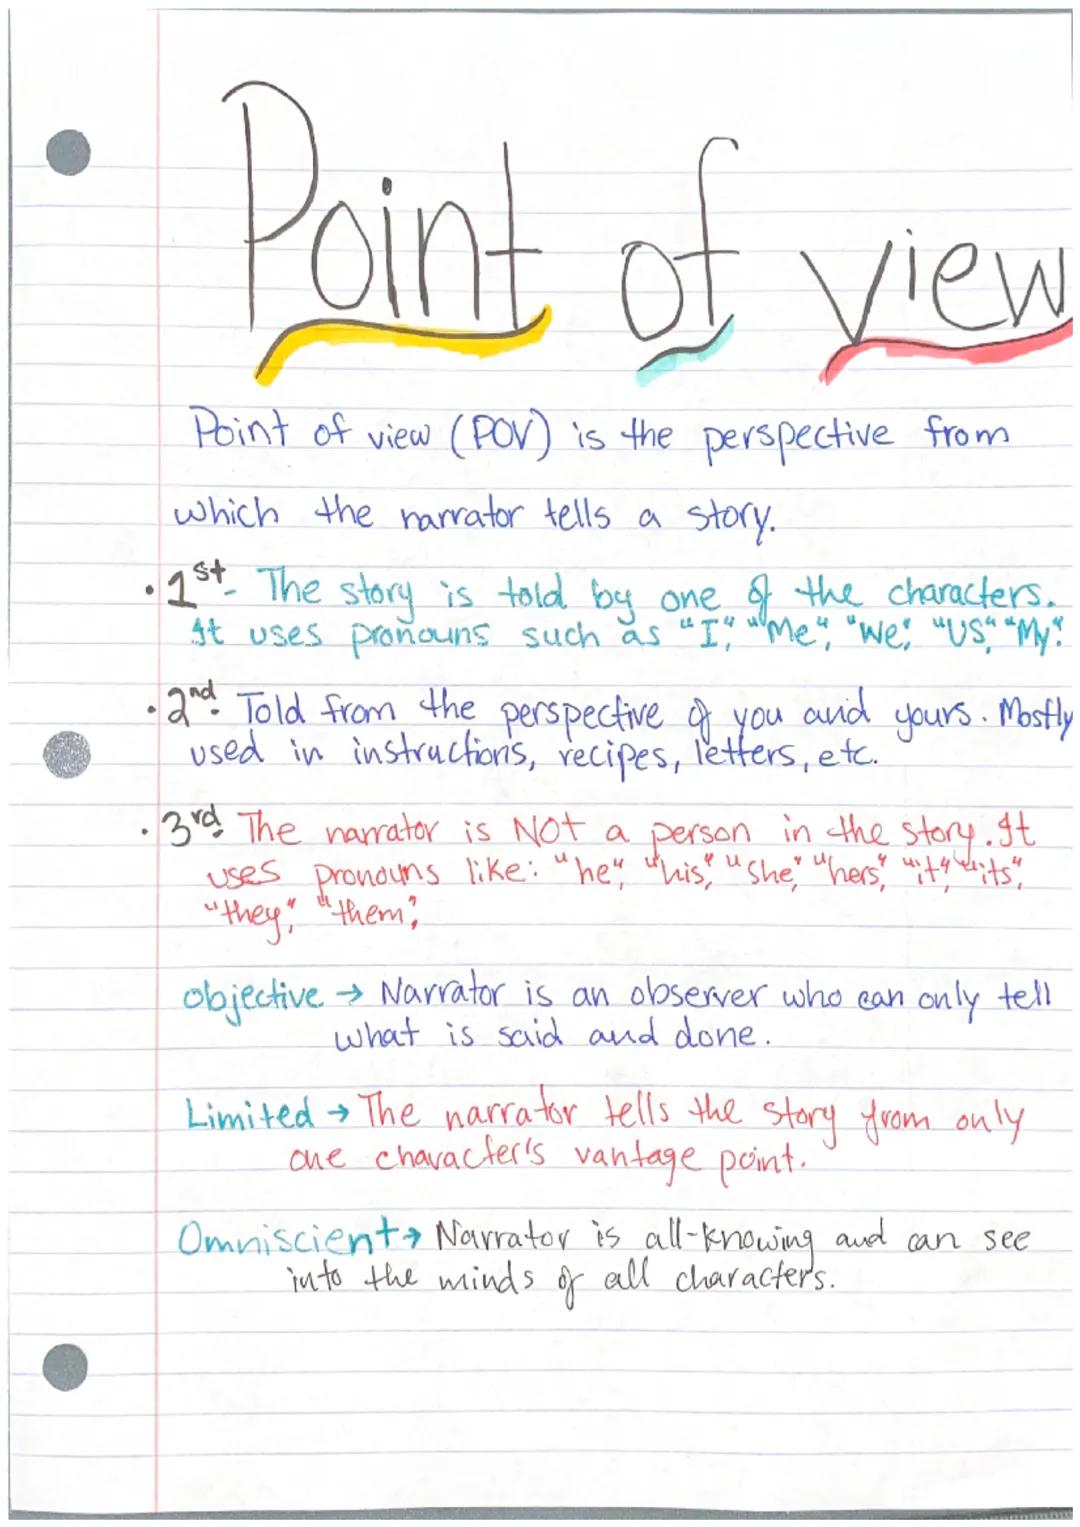 Point of view
Point of view (POV) is the perspective from
which the narrator tells a story.
• 1st- The story is told by one of the characters.
It uses pronouns such as "I", "Me", "We", "US", "My".
• 2nd- Told from the perspective of you and yours. Mostly
used in instructions, recipes, letters, etc.
• 3rd- The narrator is NOT a person in the story. It
uses pronouns like: "he", "his", "She", "hers", "it", "its",
"they", "them",
objective → Narrator is an observer who can only tell
what is said and done.
Limited → The narrator tells the story from only
one character's vantage point.
Omniscient → Narrator is all-knowing and can see
into the minds of all characters.